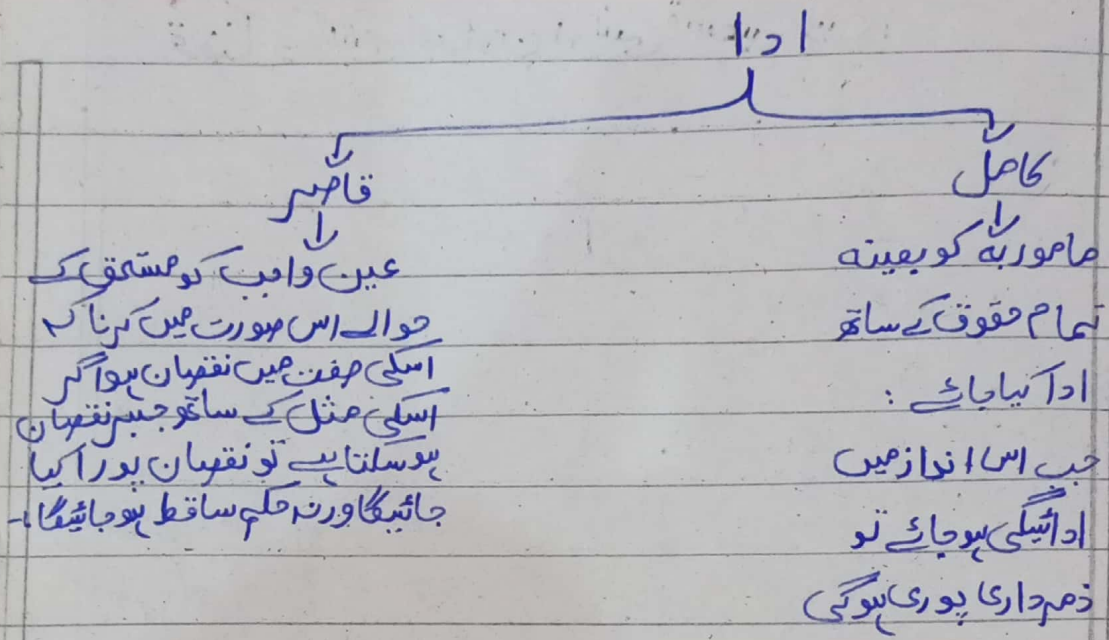 ادا
کامل
مامور بہ کو بعینہ
تمام حقوق کے ساتھ
ادا کیا جائے :
جب اس انداز میں
ادائیگی ہو جائے تو
ذمہ داری پوری ہوگی
قاصر
عین واجب کو مستحق کے
حوالے اس صورت میں کرنا کہ
اسکی صفت میں نقصان ہو اگر
اسکی مثل کے ساتھ جبر نقصان
ہو سکتا ہے تو نقصان پورا کیا
جائیگا ورنہ حکم ساقط ہو جائیگا۔